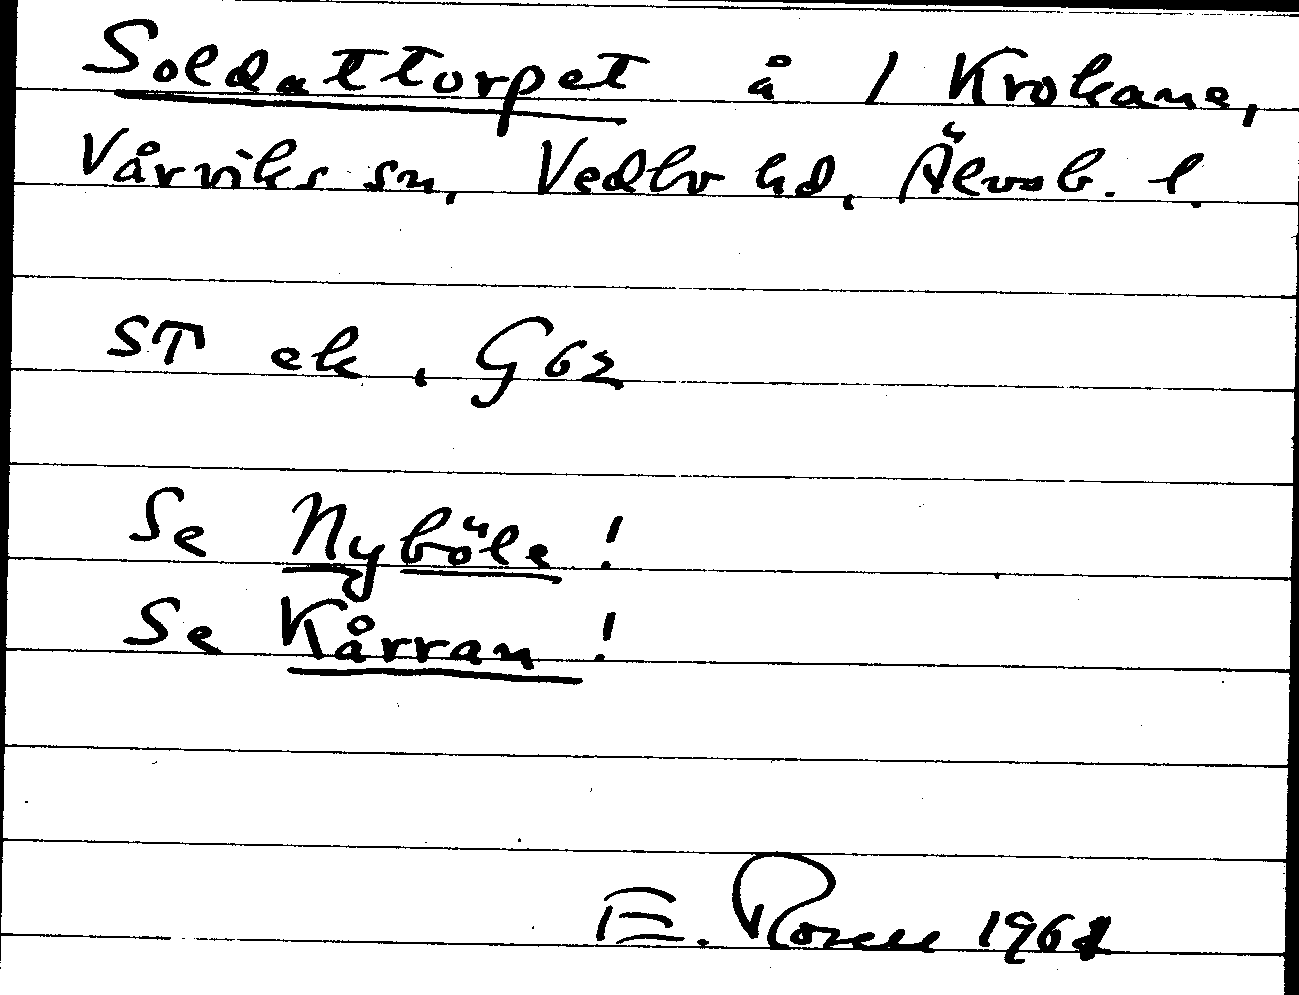 Soldattorpet å 1 Krokane,
Vårviks sn, Vedbo hd, Älvsb. l.
ST ek. G62
Se Nyböle!
Se Kårran!
E. Rosell